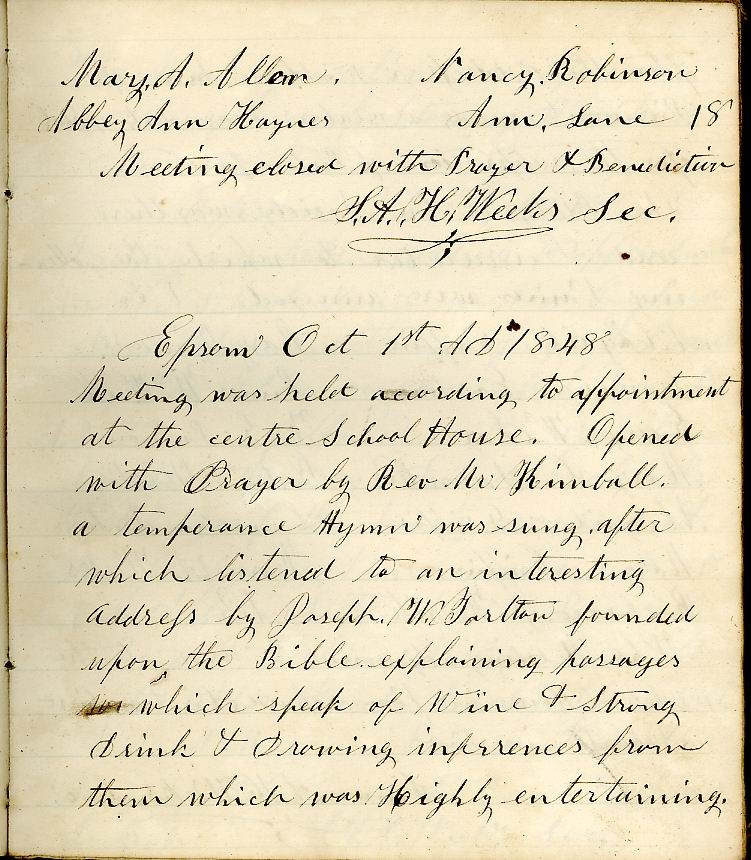 Mary, A. Allen. Nancy Robinson
Abbey Ann Haynes Ann, Lane 18
Meeting closed with Prayer & Benediction
S. A. H. Weeks Sec.
Epsom Oct 1st AD 1848
Meeting was held according to appointment
at the centre School House. Opened
with Prayer by Rev Mr Kimball.
a temperance Hymn was sung, after
which listened to an interesting
Address by Joseph. W. Tarlton founded
upon the Bible explaining passages
which speak of Wine & Strong
Drink & Drowing inferrences from
them which was Highly entertaining.